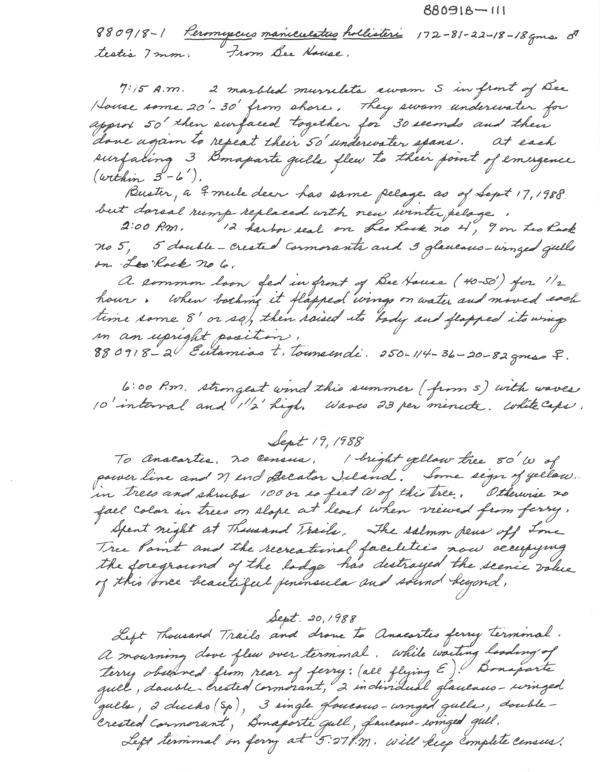 880918-111
880918-1 Peromyscus maniculatus hollisteri 172-81-22-18-18gms ♂
testis 7mm. From Bee House.
7:15 A.M. 2 marbled murrelets swam S in front of Bee
House some 20'-30' from shore. They swam underwater for
approx 50' then surfaced together for 30 seconds and then
dove again to repeat their 50' underwater spans. At each
surfacing 3 Bonaparte gulls flew to their point of emergence
(within 3-6').
Buster, a ♀ mule deer has same pelage as of Sept 17, 1988
but dorsal rump replaced with new winter pelage.
2:00 P.M. 12 harbor seal on Leo Rock no 4, 9 on Leo Rock
no 5, 5 double-crested cormorants and 3 glaucous-winged gulls
on Leo Rock no 6.
A common loon fed in front of Bee House (40-50') for 1/2
hour. When bathing it flapped wings on water and moved each
time some 8' or so, then raised its body and flapped its wing
in an upright position.
880918-2 Eutamias t. townsendi. 250-114-36-20-82gms ♀.
6:00 P.M. strongest wind this summer (from S) with waves
10' interval and 1 1/2' high. Waves 23 per minute. White caps.
Sept 19, 1988
To Anacortes. no census. 1 bright yellow tree 80' W of
power line and N end Decator Island. Some sign of yellow
in trees and shrubs 100 or so feet W of this tree. Otherwise no
fall color in trees on slope at least when viewed from ferry.
Spent night at Thousand Trails. The salmon pens off Lone
Tree Point and the recreational facilities now occupying
the foreground of the lodge has destroyed the scenic value
of this once beautiful peninsula and sound beyond.
Sept. 20, 1988
Left Thousand Trails and drove to Anacortes ferry terminal.
A mourning dove flew over terminal. While waiting loading of
ferry observed from rear of ferry: (all flying E). Bonaparte
gull, double-crested cormorant, 2 individual glaucous-winged
gulls, 2 ducks (sp), 3 single glaucous-winged gulls, double-
crested cormorant, Bonaparte gull, glaucous-winged gull.
Left terminal on ferry at 5:27 P.M. Will keep complete census.